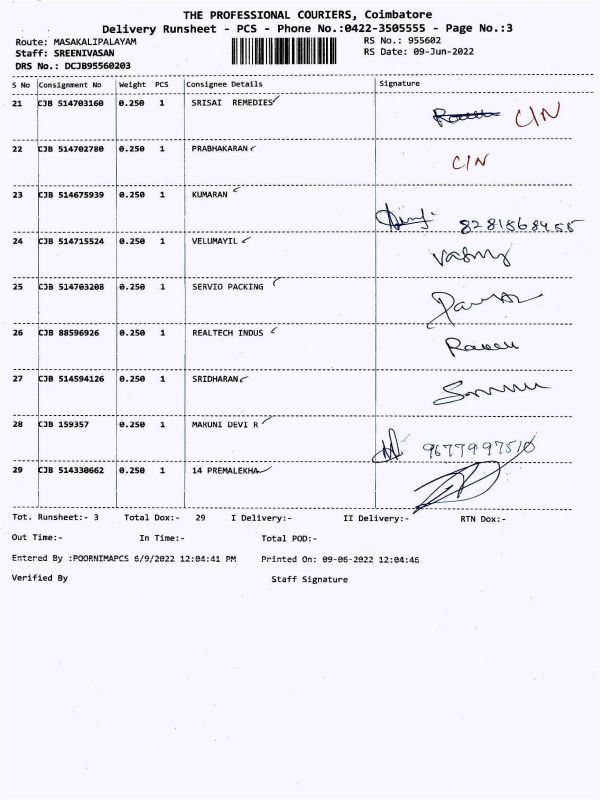 THE PROFESSIONAL COURIERS, Coimbatore
Delivery Runsheet - PCS - Phone No.:0422-3505555 - Page No.:3
Route: MASAKALIPALAYAM RS No.: 955602
Staff: SREENIVASAN RS Date: 09-Jun-2022
DRS No.: DCJB95560203
S No Consignment No Weight PCS Consignee Details Signature
21 CJB 514703160 0.250 1 SRISAI REMEDIES C/N
22 CJB 514702780 0.250 1 PRABHAKARAN C/N
23 CJB 514675939 0.250 1 KUMARAN 8281568455
24 CJB 514715524 0.250 1 VELUMAYIL
25 CJB 514703208 0.250 1 SERVIO PACKING
26 CJB 88596926 0.250 1 REALTECH INDUS
27 CJB 514594126 0.250 1 SRIDHARAN
28 CJB 159357 0.250 1 MARUNI DEVI R 9677997510
29 CJB 514330662 0.250 1 14 PREMALEKHA
Tot. Runsheet:- 3 Total Dox:- 29 I Delivery:- II Delivery:- RTN Dox:-
Out Time:- In Time:- Total POD:-
Entered By :POORNIMAPCS 6/9/2022 12:04:41 PM Printed On: 09-06-2022 12:04:46
Verified By Staff Signature